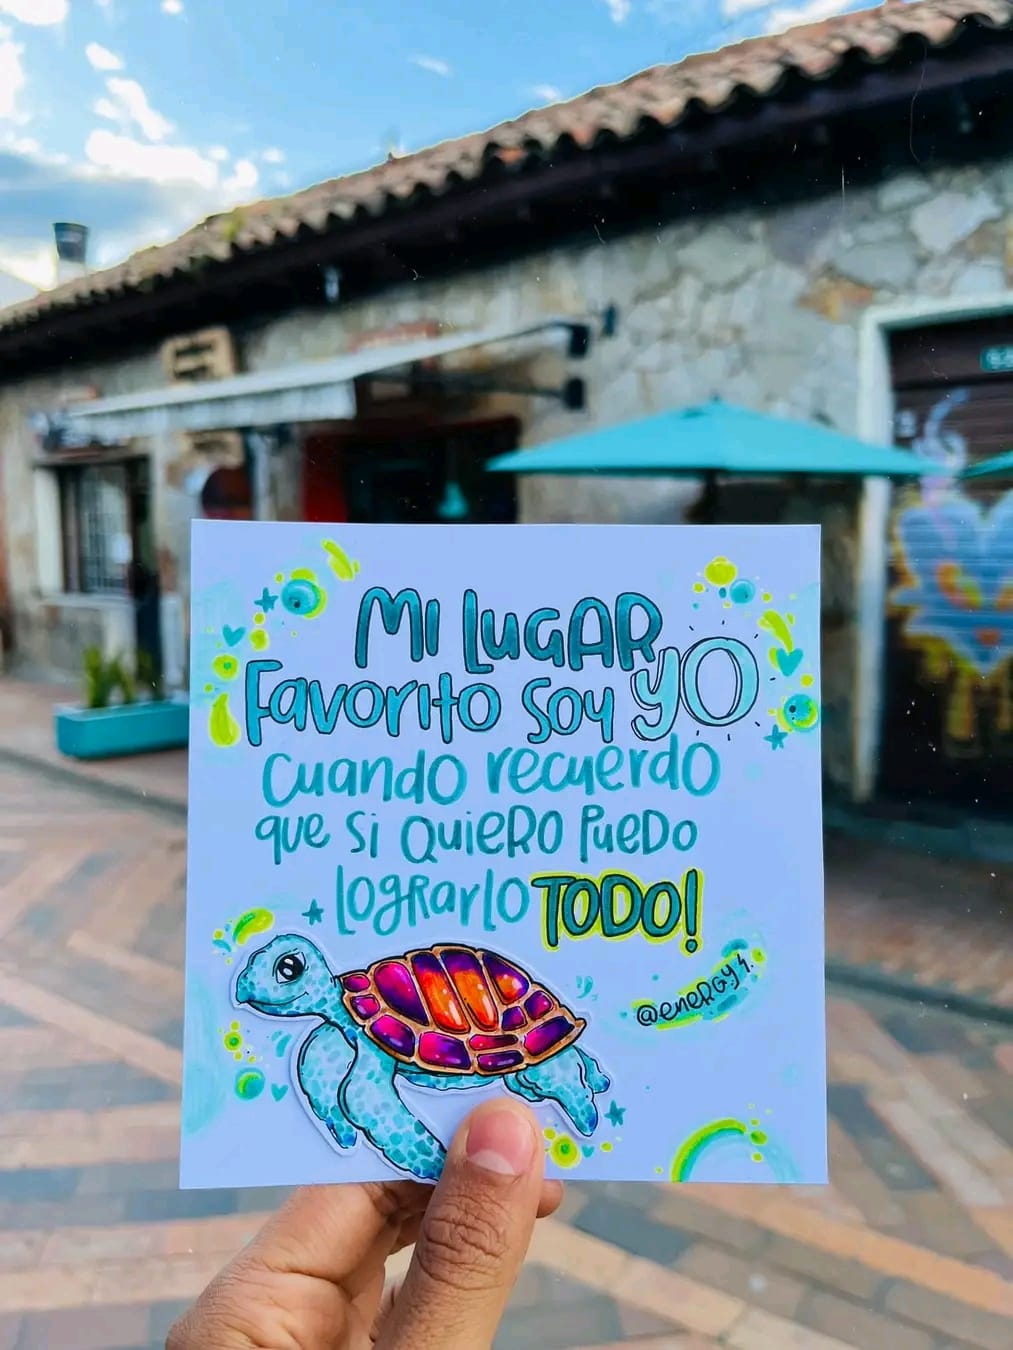 Mi LuGAR
Favorito soy yo
cuando recuerdo
que si quiero puedo
lograrlo TODO!
@energy4.